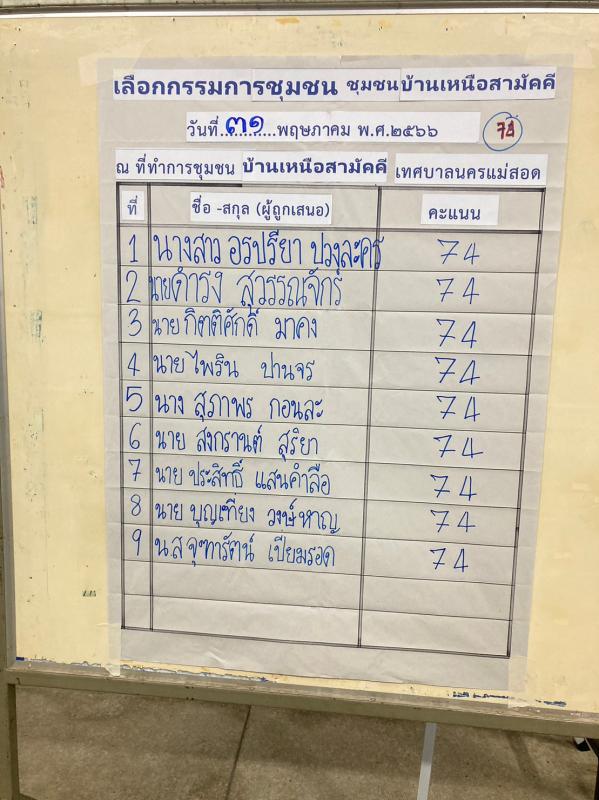 เลือกกรรมการชุมชน ชุมชนบ้านเหนือสามัคคี
วันที่...๓๑.........พฤษภาคม พ.ศ.๒๕๖๖
ณ ที่ทำการชุมชน บ้านเหนือสามัคคี เทศบาลนครแม่สอด
ที่ ชื่อ -สกุล (ผู้ถูกเสนอ) คะแนน
1 นางสาว อรปรียา ปวงละคร 74
2 นายดำรง สุวรรณจักร์ 74
3 นาย กิตติศักดิ์ มาคง 74
4 นาย ไพริน ปานจร 74
5 นาง สุภาพร กอนละ 74
6 นาย สงกรานต์ สุริยา 74
7 นาย ประสิทธิ์ แสนคำลือ 74
8 นาย บุญเที่ยง วงษ์หาญ 74
9 น.ส จุฑารัตน์ เปี่ยมรอด 74